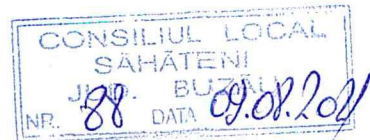 CONSILIUL LOCAL
SĂHĂTENI
JUD. BUZĂU
NR. 88 DATA 09.08.2021